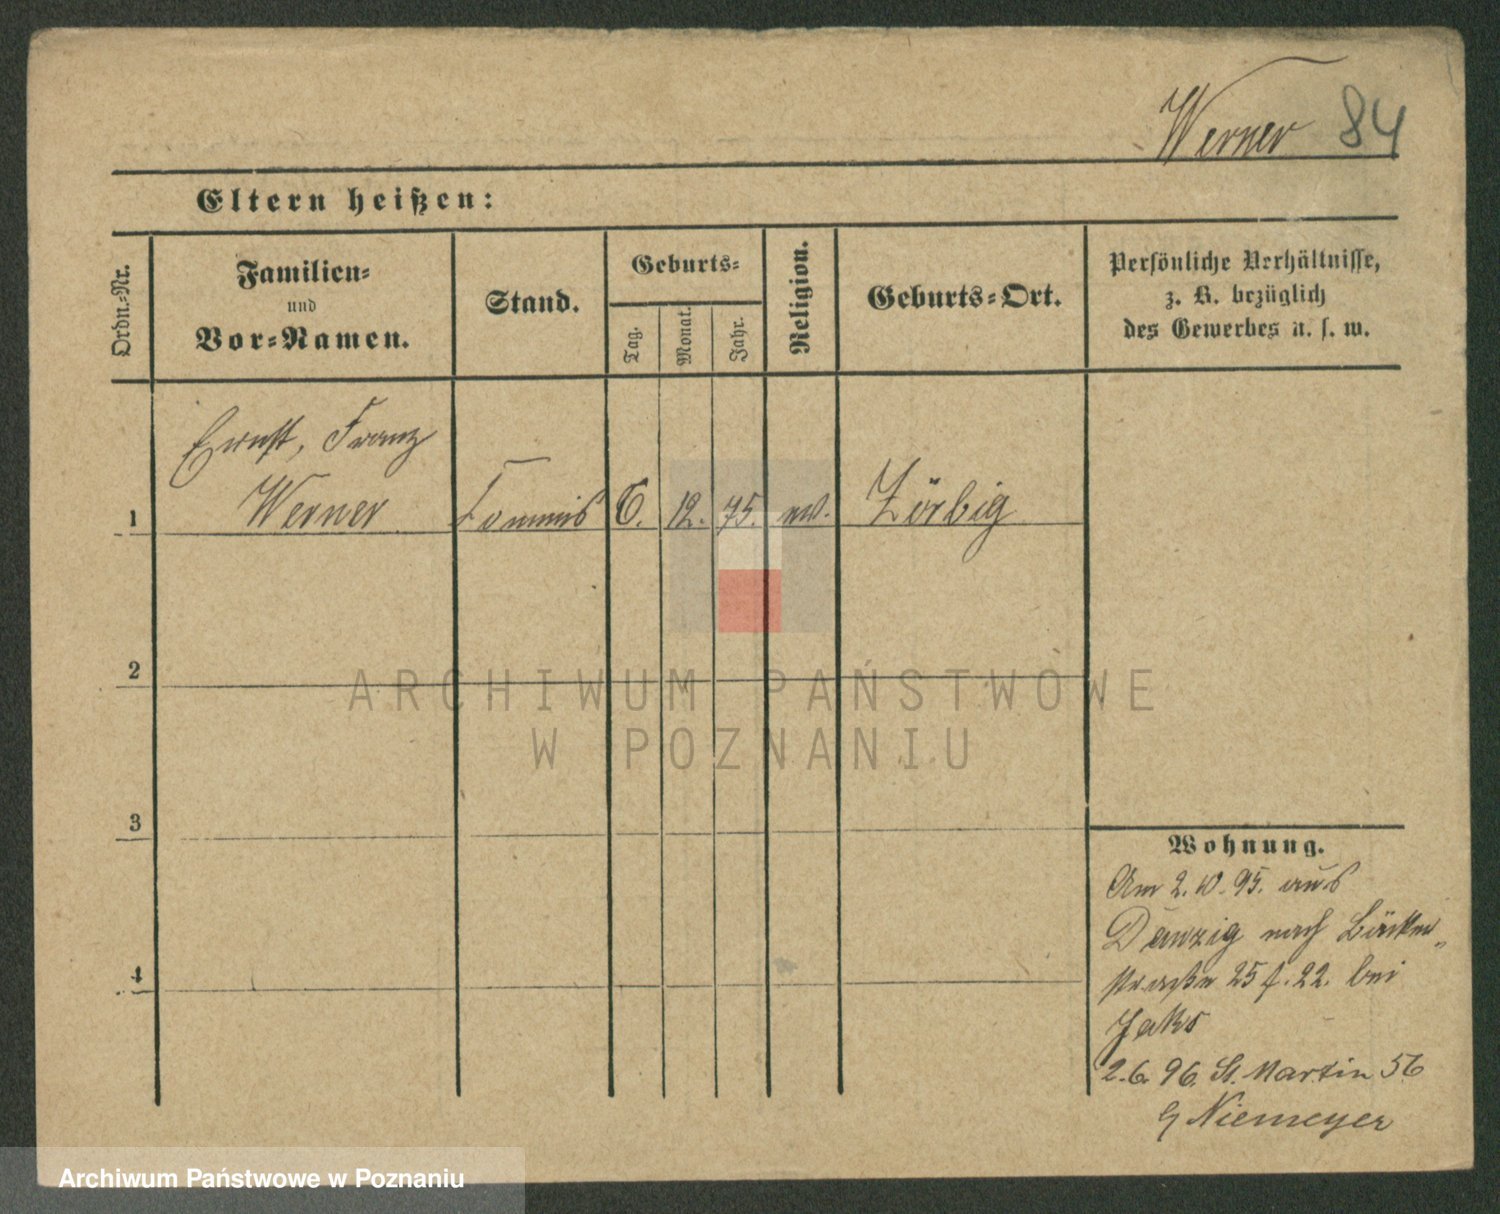 Werner 84
Eltern heißen:
Ordn.-Nr.
Familien-
und
Vor-Namen.
Stand.
Geburts-
Tag.
Monat.
Jahr.
Religion.
Geburts-Ort.
Persönliche Verhältnisse,
z. B. bezüglich
des Gewerbes u. s. w.
Ernst, Franz
1 Werner Commis 6. 12. 75. ev. Zörbig
2
3
4
Wohnung.
Am 2.10.95. aus
Danzig nach Bäcker„
straße 25 f. 22. bei
2.6.96. St. Martin 56
Niemeyer
ARCHIWUM PAŃSTWOWE
W POZNANIU
Archiwum Państwowe w Poznaniu